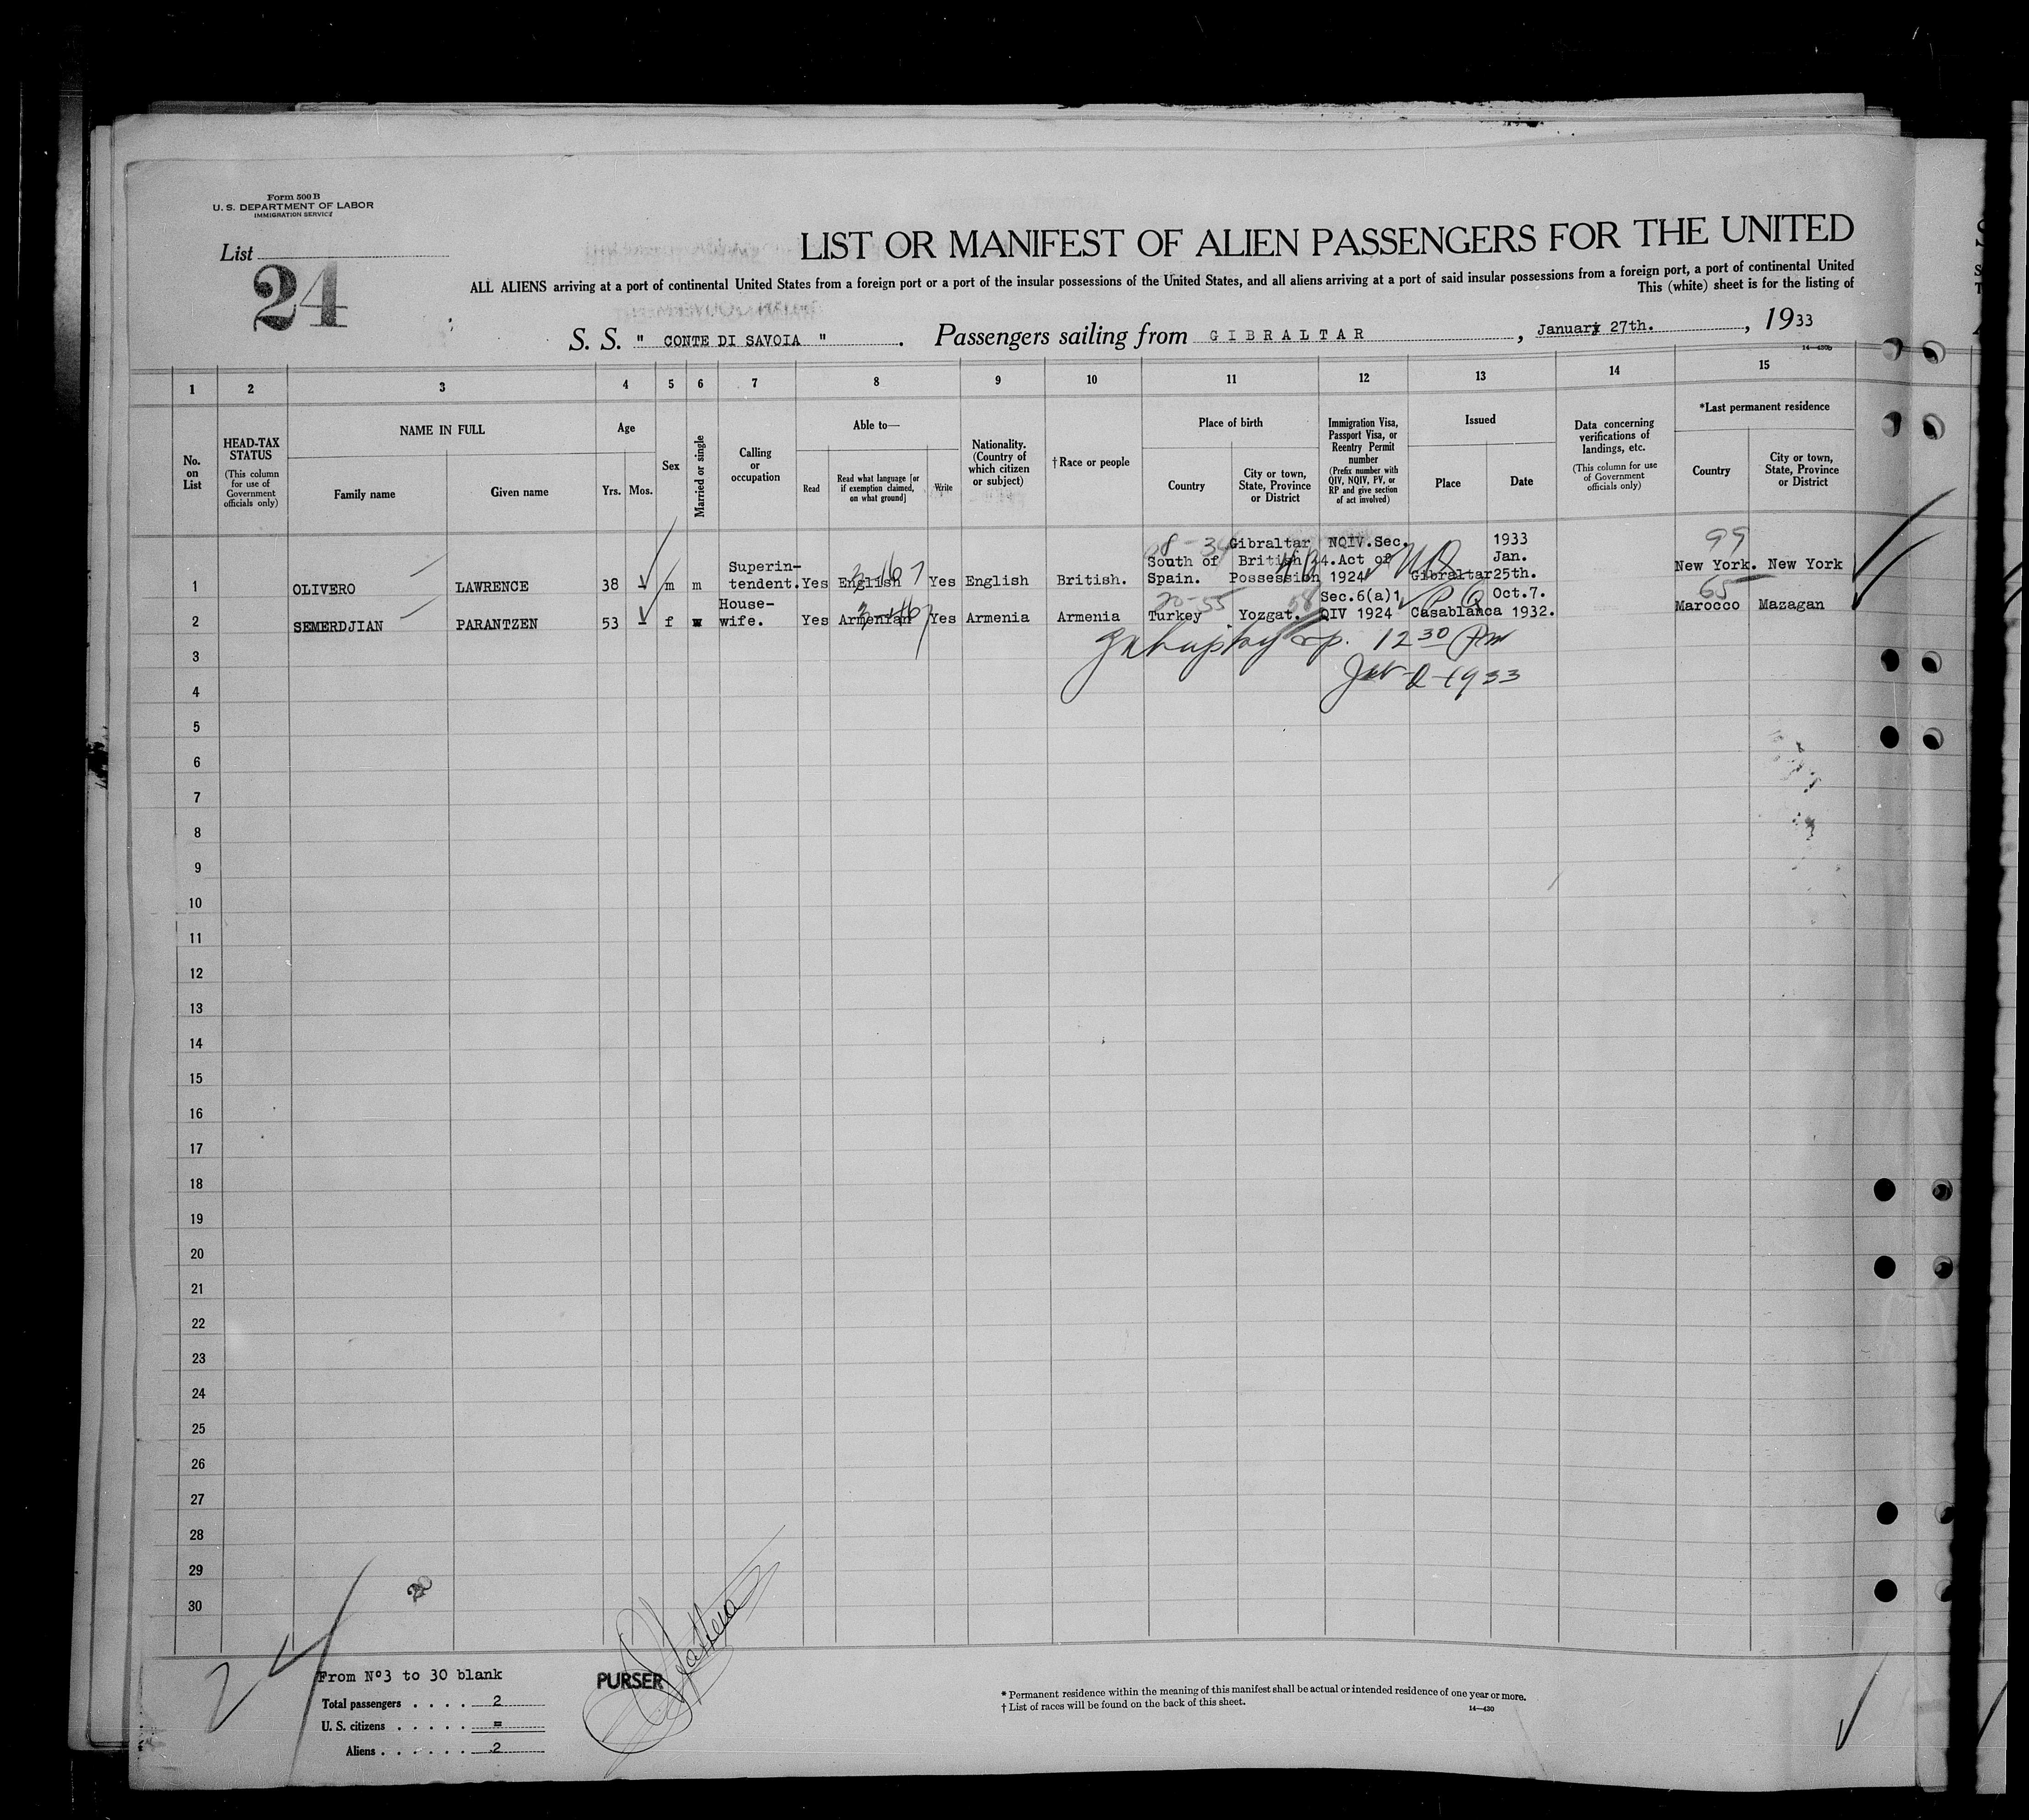 Form 500 B
U. S. DEPARTMENT OF LABOR
IMMIGRATION SERVICE
List
24
LIST OR MANIFEST OF ALIEN PASSENGERS FOR THE UNITED
ALL ALIENS arriving at a port of continental United States from a foreign port or a port of the insular possessions of the United States, and all aliens arriving at a port of said insular possessions from a foreign port, a port of continental United
This (white) sheet is for the listing of
S. S. " CONTE DI SAVOIA " . Passengers sailing from GIBRALTAR , January 27th. , 1933
14—430b
1 2 3 4 5 6 7 8 9 10 11 12 13 14 15
No. on List
HEAD-TAX STATUS
(This column for use of Government officials only)
NAME IN FULL
Family name
Given name
Age
Yrs. Mos.
Sex
Married or single
Calling or occupation
Able to—
Read
Read what language [or if exemption claimed, on what ground]
Write
Nationality. (Country of which citizen or subject)
† Race or people
Place of birth
Country
City or town, State, Province or District
Immigration Visa, Passport Visa, or Reentry Permit number
(Prefix number with QIV, NQIV, PV, or RP and give section of act involved)
Issued
Place
Date
Data concerning verifications of landings, etc.
(This column for use of Government officials only)
*Last permanent residence
Country
City or town, State, Province or District
08-34 99
1 OLIVERO LAWRENCE 38 - m m Superintendent. Yes English Yes English British. South of Spain. Gibraltar British Possession NQIV.Sec. 4.Act of 1924 Gibraltar 1933 Jan. 25th. New York. New York
20-55 58 65
2 SEMERDJIAN PARANTZEN 53 - f w House-wife. Yes Armenian Yes Armenia Armenia Turkey Yozgat. Sec.6(a)1 QIV 1924 Casablanca Oct.7. 1932. Marocco Mazagan
12 30 Pm
3
1933
4
5
6
7
8
9
10
11
12
13
14
15
16
17
18
19
20
21
22
23
24
25
26
27
28
29
30
24
From Nº3 to 30 blank
Total passengers . . . . 2
U. S. citizens . . . . . =
Aliens . . . . . . 2
PURSER
* Permanent residence within the meaning of this manifest shall be actual or intended residence of one year or more.
† List of races will be found on the back of this sheet.
14—430